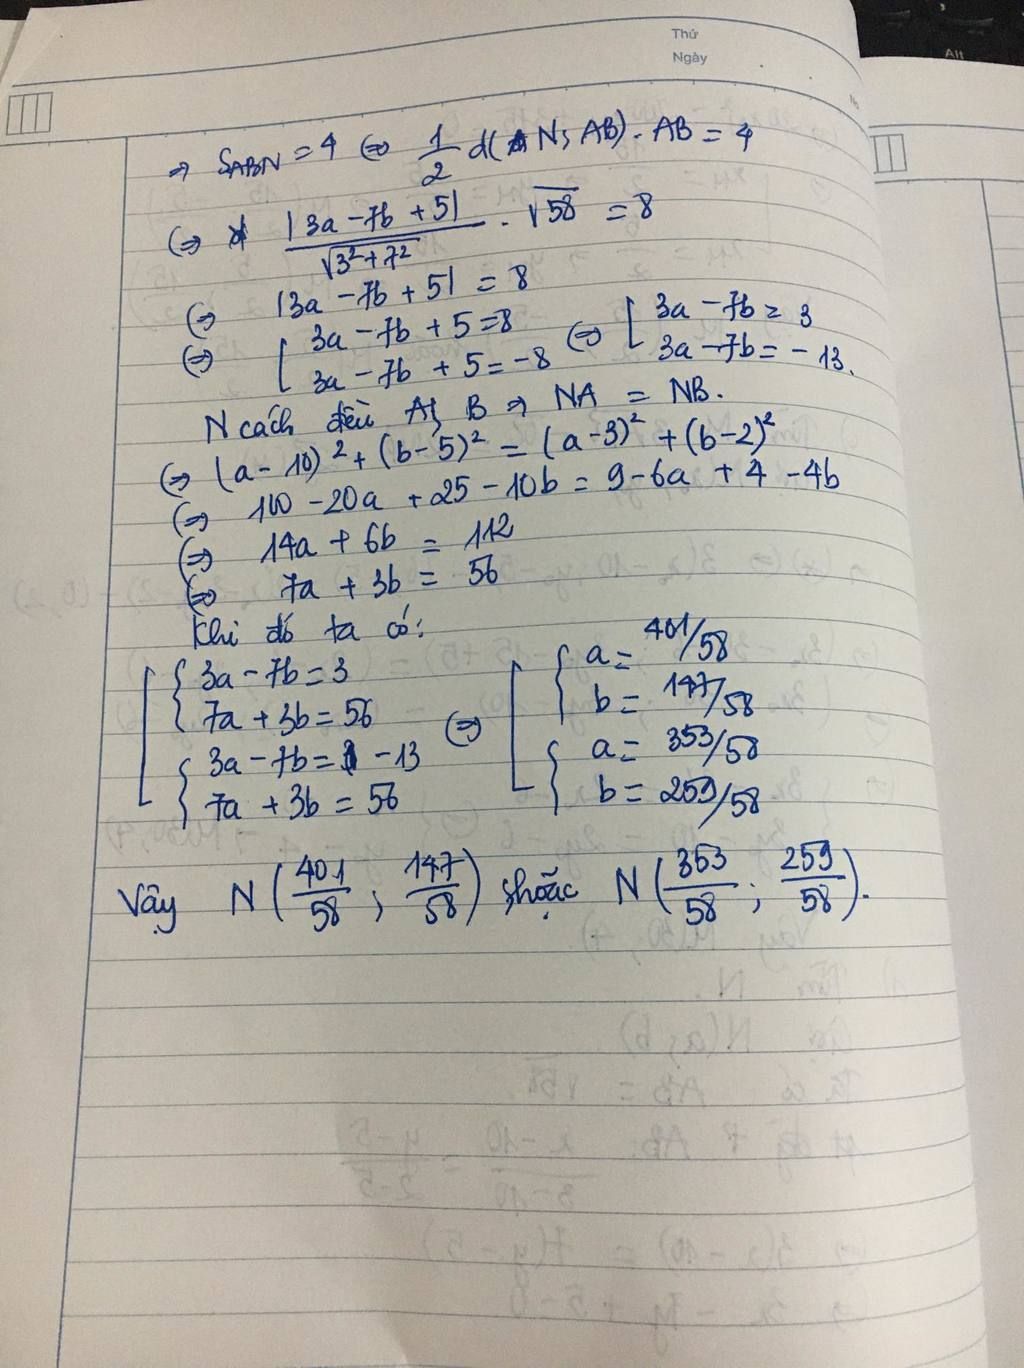 Thứ
Ngày
Alt
⇒ S_ABN = 4 ⇔ 1/2 d(N; AB) . AB = 4
⇔ |3a - 7b + 5| / √(3² + 7²) . √58 = 8
⇔ |3a - 7b + 5| = 8
⇔ [ 3a - 7b + 5 = 8 ⇔ [ 3a - 7b = 3
3a - 7b + 5 = -8 3a - 7b = -13.
N cách đều A, B ⇒ NA = NB.
⇔ (a - 10)² + (b - 5)² = (a - 3)² + (b - 2)²
⇔ 100 - 20a + 25 - 10b = 9 - 6a + 4 - 4b
⇔ 14a + 6b = 112
⇔ 7a + 3b = 56
Khi đó ta có:
[ { 3a - 7b = 3 ⇔ [ { a = 401/58
7a + 3b = 56 b = 147/58
{ 3a - 7b = -13 { a = 353/58
7a + 3b = 56 b = 259/58
Vậy N (401/58 ; 147/58) hoặc N (353/58 ; 259/58).